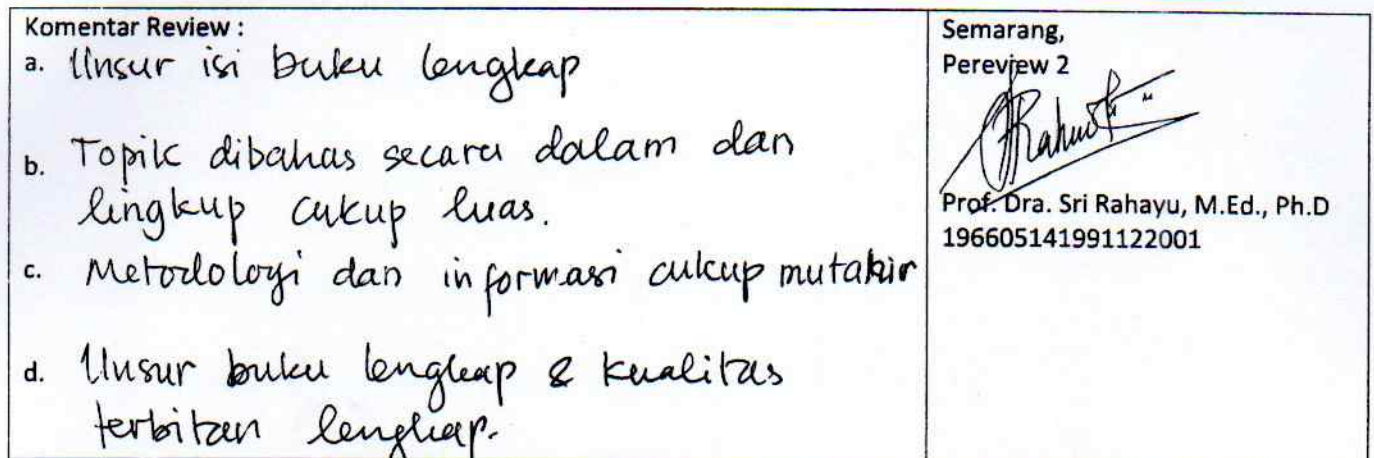 Komentar Review :
a. Unsur isi buku lengkap
b. Topik dibahas secara dalam dan
lingkup cukup luas.
c. Metodologi dan informasi cukup mutahir
d. Unsur buku lengkap & kualitas
terbitan lengkap.
Semarang,
Pereview 2
Prof. Dra. Sri Rahayu, M.Ed., Ph.D
196605141991122001